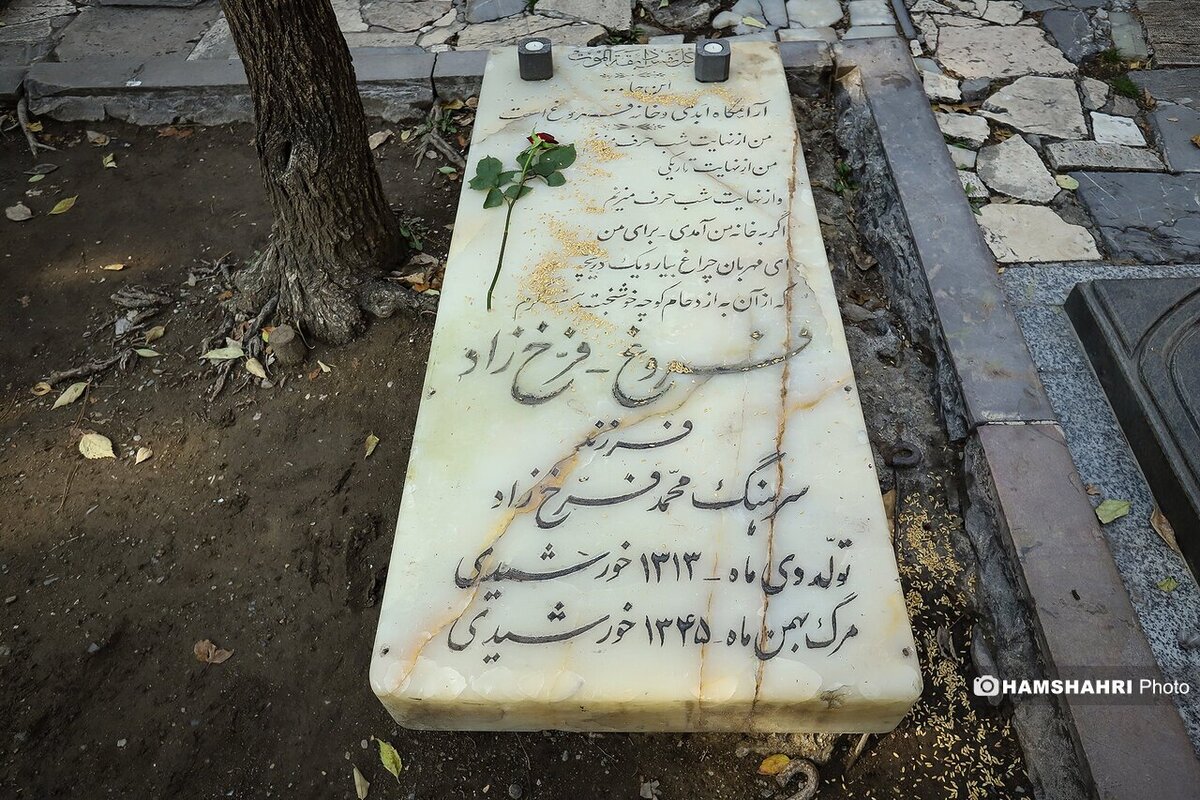 کل نفس ذائقة الموت
این جا ...
آرامگاه ابدی و خانه فروغ است
من از نهایت شب حرف میزنم
من از نهایت تاریکی
و از نهایت شب حرف میزنم
اگر به خانه من آمدی - برای من
ای مهربان چراغ بیار و یک دریچه
که از آن به ازدحام کوچه خوشبخت بنگرم
فروغ - فرّخ زاد
فرزند
سرهنگ محمّد فرّخ زاد
تولّد دی ماه - ۱۳۱۳ خورشیدی
مرگ بهمن ماه - ۱۳۴۵ خورشیدی
HAMSHAHRI Photo